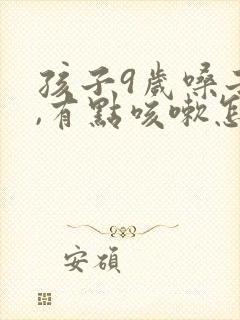 孩子9歲嗓子
,有點咳嗽怎
安碩